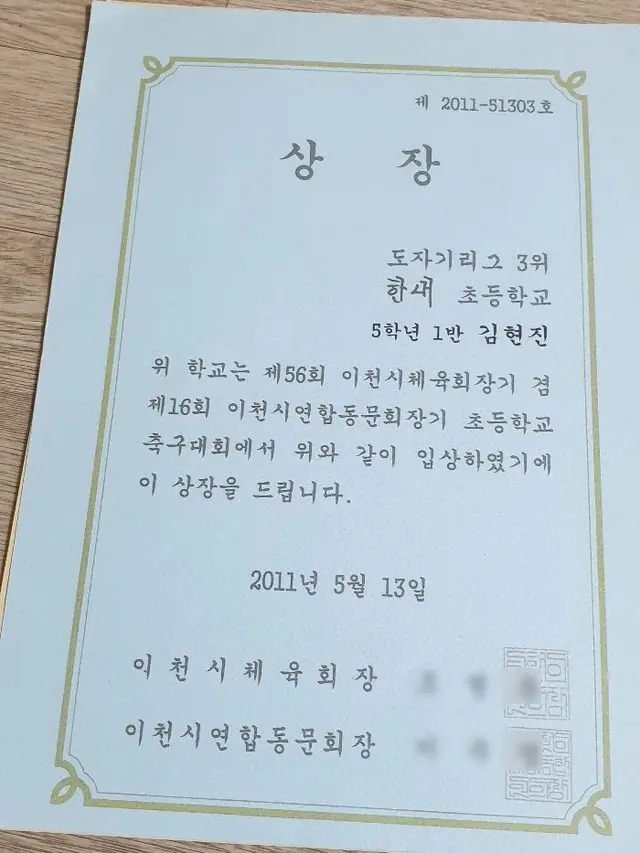 제 2011-51303호
상 장
도자기리그 3위
한새 초등학교
5학년 1반 김현진
위 학교는 제56회 이천시체육회장기 겸
제16회 이천시연합동문회장기 초등학교
축구대회에서 위와 같이 입상하였기에
이 상장을 드립니다.
2011년 5월 13일
이천시체육회장
이천시연합동문회장